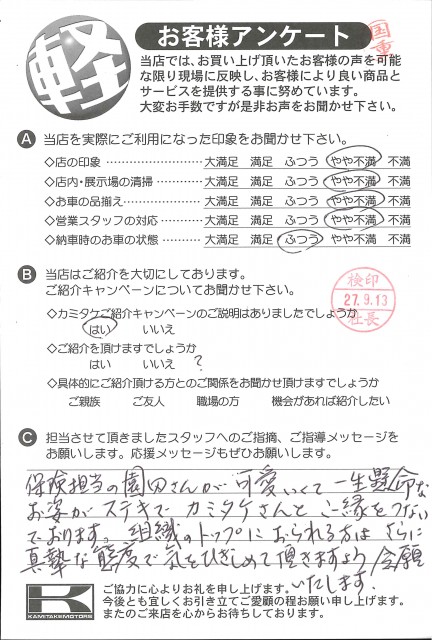 軽
お客様アンケート
国重
当店では、お買い上げ頂いたお客様の声を可能
な限り現場に反映し、お客様により良い商品と
サービスを提供する事に努めています。
大変お手数ですが是非お声をお聞かせ下さい。
A 当店を実際にご利用になった印象をお聞かせ下さい。
◇店の印象 ……………………… 大満足 満足 ふつう やや不満 不満
◇店内・展示場の清掃 ………… 大満足 満足 ふつう やや不満 不満
◇お車の品揃え ………………… 大満足 満足 ふつう やや不満 不満
◇営業スタッフの対応 ………… 大満足 満足 ふつう やや不満 不満
◇納車時のお車の状態 ………… 大満足 満足 ふつう やや不満 不満
B 当店はご紹介を大切にしております。
ご紹介キャンペーンについてお聞かせ下さい。
検印
27.9.13
社長
◇カミタケご紹介キャンペーンのご説明はありましたでしょうか
はい いいえ
◇ご紹介を頂けますでしょうか
はい いいえ ?
◇具体的にご紹介頂ける方とのご関係をお聞かせ頂けますでしょうか
ご親族 ご友人 職場の方 機会があれば紹介したい
C 担当させて頂きましたスタッフへのご指摘、ご指導メッセージを
お願いします。応援メッセージもぜひお願いします。
保険担当の園田さんが可愛いくて一生懸命な
お姿がステキでカミタケさんとご縁をつない
でおります。組織のトップにおられる方は さらに
真摯な態度で気をひきしめて頂きますよう念願
いたします.
K
KAMITAKEMOTORS
ご協力に心よりお礼を申し上げます。
今後とも宜しくお引き立てご愛顧の程お願い申し上げます。
またのご来店を心からお待ちしております。